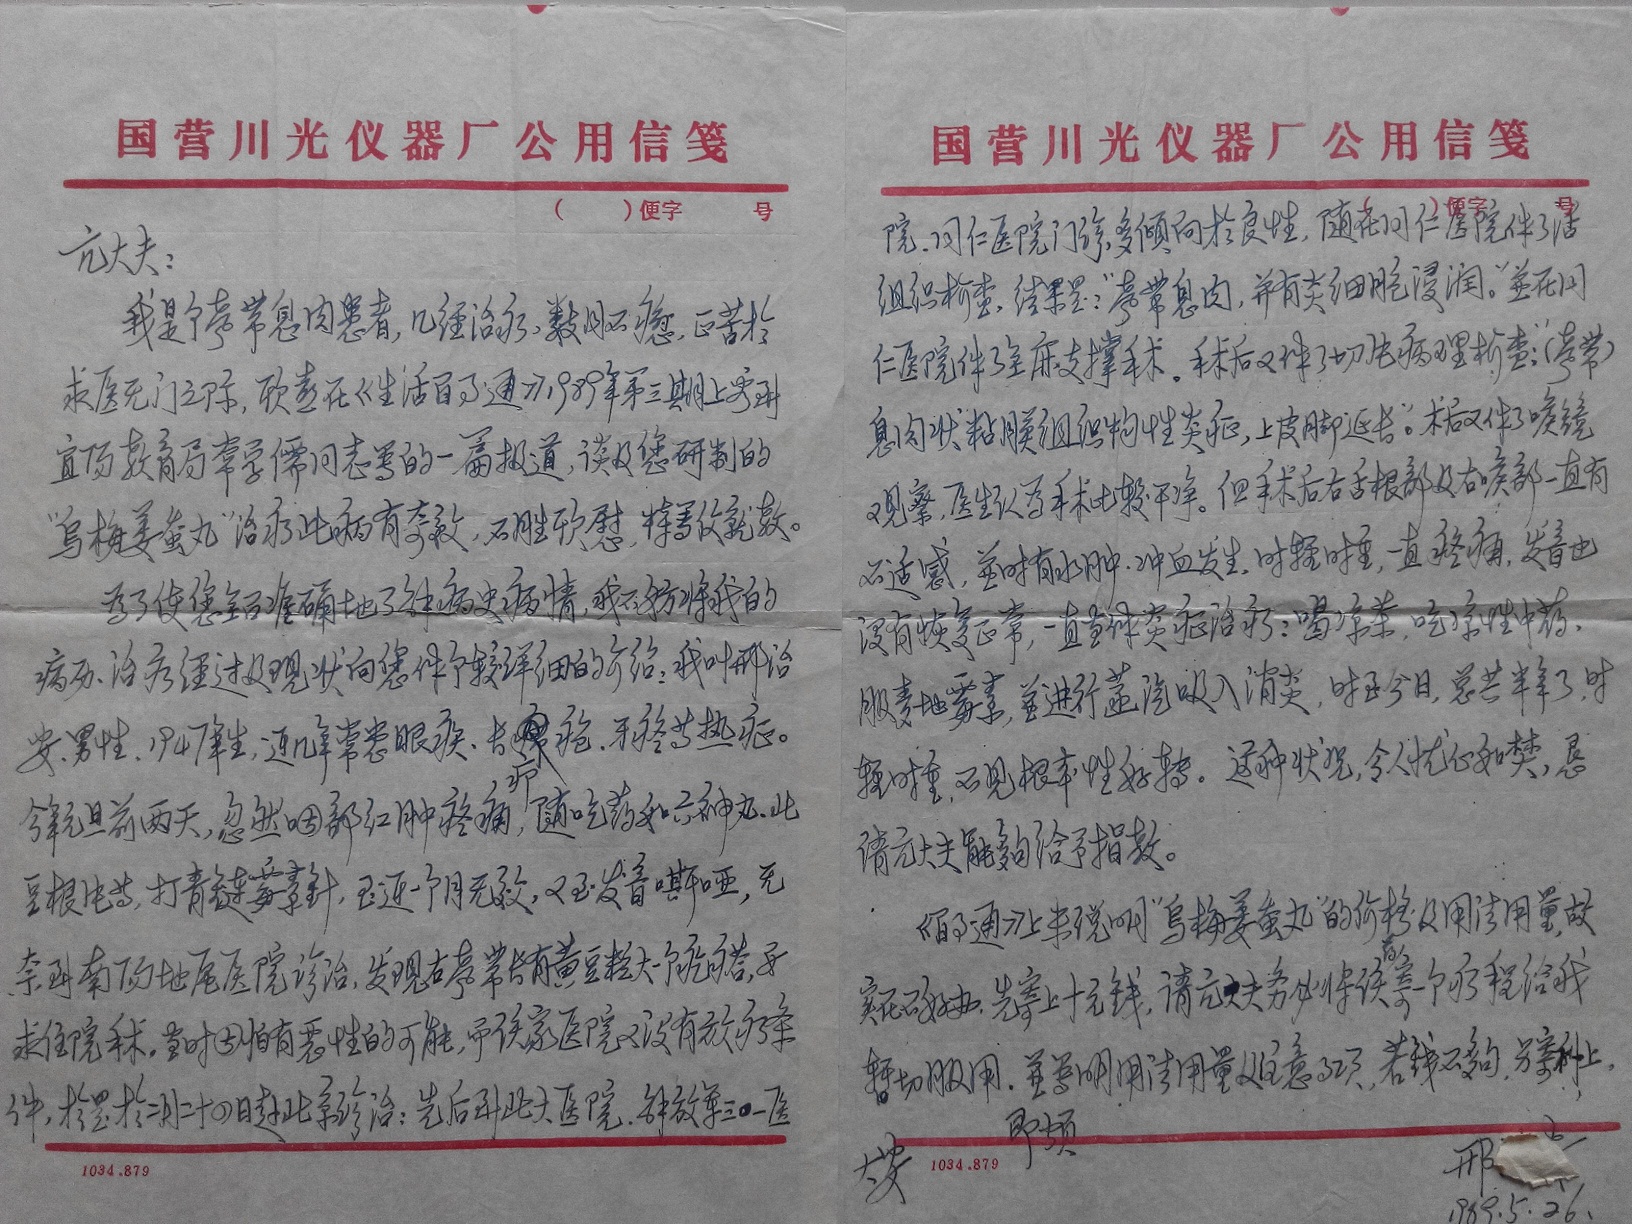 国营川光仪器厂公用信笺
( )便字 号
亢大夫:
我是个声带息肉患者,几经治疗,数月不癒,正苦於
求医无门之际,欣喜在《生活百事通》1989年第三期上,看到
宜阳教育局常学儒同志写的一篇报道,谈及您研制的
“乌梅姜蚕丸”治疗此病有奇效,不胜欣慰,特写信就教。
为了使您全面准确地了解病史病情,我不妨将我的
病历、治疗经过及现状向您作个较详细的介绍:我叫邢治
安、男性、1947年生,近几年常患眼疾、长疖疮、牙疼等热症。
今年元旦前两天,忽然咽部红肿疼痛,随吃药如六神丸、北
豆根片等,打青链霉素针,至近一个月无效,又至发音嘶哑,无
奈到南阳地区医院诊治,发现右声带长有黄豆粒大一个疙瘩,要
求住院手术。当时因怕有恶性的可能,而该家医院又没有放疗条
件,於是於二月二十四日赴北京诊治:先后到北大医院、解放军三〇一医
1034.879
国营川光仪器厂公用信笺
( )便字 号
院、同仁医院门诊,多倾向於良性,随在同仁医院作了活
组织检查,结果是:“声带息肉,并有炎细胞浸润。”並在同
仁医院作了全麻支撑手术。手术后又作了切片病理检查:“(声带)
息肉状粘膜组织构性炎症,上皮脚延长”。术后又作了喉镜
观察,医生认为手术比较干净。但手术后右舌根部及右喉部一直有
不适感,並时有水肿、冲血发生,时轻时重,一直疼痛,发音也
没有恢复正常,一直当作炎症治疗:喝凉茶,吃凉性中药、
服麦地霉素,並进行蒸汽吸入消炎,时至今日,总共半年了,时
轻时重,不见根本性好转。这种状况,令人忧心如焚,恳
请亢大夫能夠给予指教。
《百事通》上未说明“乌梅姜蚕丸”的价格及用法用量,故
实在不好办,先寄上十元钱,请亢大夫务必作该寄一个疗程给我
暂切服用,並写明用法用量及注意事项,若钱不夠,另寄补上。
即颂
大安
邢
1989.5.26.
1034.879